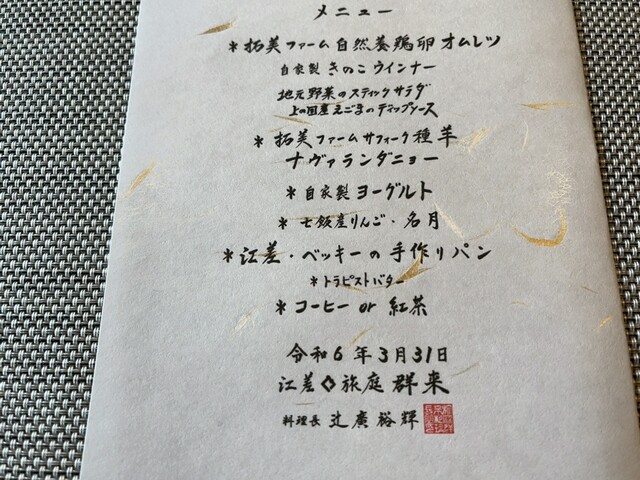 メニュー
＊拓美ファーム自然養鶏卵オムレツ
自家製きのこウインナー
地元野菜のスティックサラダ
上の国産えごまのディップソース
＊拓美ファームサフォーク種羊
ナヴァランダニョー
＊自家製ヨーグルト
＊七飯産りんご・名月
＊江差・ベッキーの手作りパン
＊トラピストバター
＊コーヒー or 紅茶
令和6年3月31日
江差◇旅庭 群来
料理長 辻廣裕輝